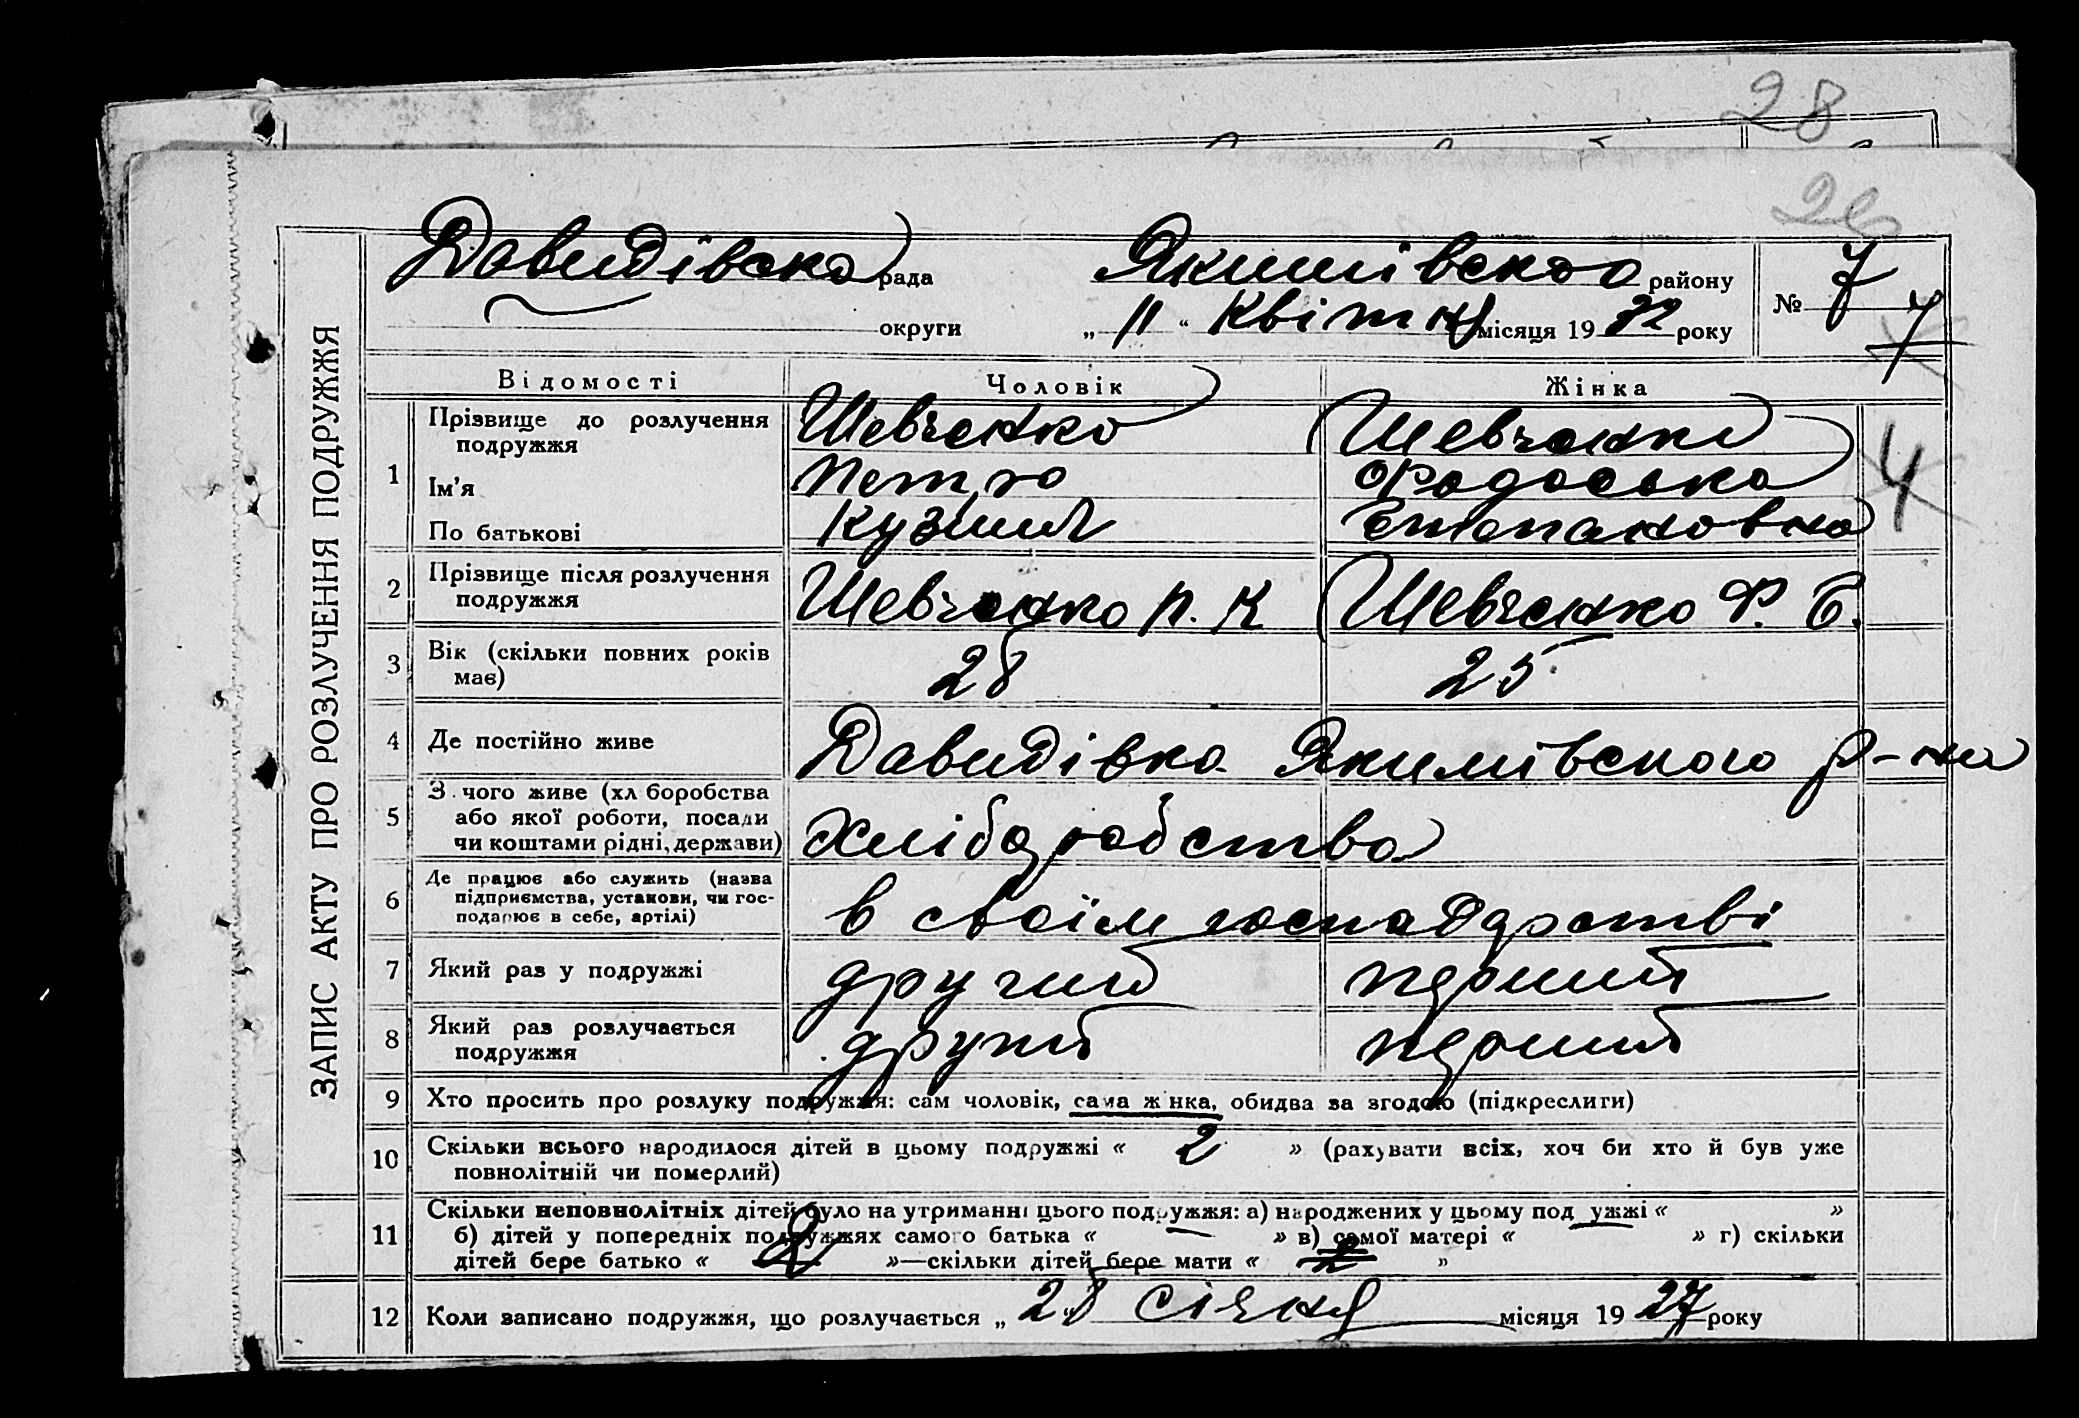 28
26
ЗАПИС АКТУ ПРО РОЗЛУЧЕННЯ ПОДРУЖЖЯ
Давидівска рада Якимівского району № 7
округи „ 11 “ Квітня місяця 19 32 року
7
Відомості Чоловік Жінка
1 Прізвище до розлучення подружжя Шевченко Шевченко
Ім'я Петро Федоська
По батькові Кузмич Степановна
4
2 Прізвище після розлучення подружжя Шевченко П. К Шевченко Ф. С.
3 Вік (скільки повних років має) 28 25
4 Де постійно живе Давидівка Якимівского р-на
5 З чого живе (хл боробства або якої роботи, посади чи коштами рідні, держави) Хліборобство
6 Де працює або служить (назва підприємства, установи, чи господарює в себе, артілі) в своїм господарстві
7 Який раз у подружжі другий перший
8 Який раз розлучається подружжя другий перший
9 Хто просить про розлуку подружжя: сам чоловік, сама жінка, обидва за згодою (підкреслити)
10 Скільки всього народилося дітей в цьому подружжі « 2 » (рахувати всіх, хоч би хто й був уже
повнолітній чи померлий)
11 Скільки неповнолітніх дітей було на утриманні цього подружжя: а) народжених у цьому подружжі « »
б) дітей у попередніх подружжях самого батька « — » в) самої матері « » г) скільки
дітей бере батько « »—скільки дітей бере мати « »
12 Коли записано подружжя, що розлучається „ 28 “ січня місяця 19 27 року